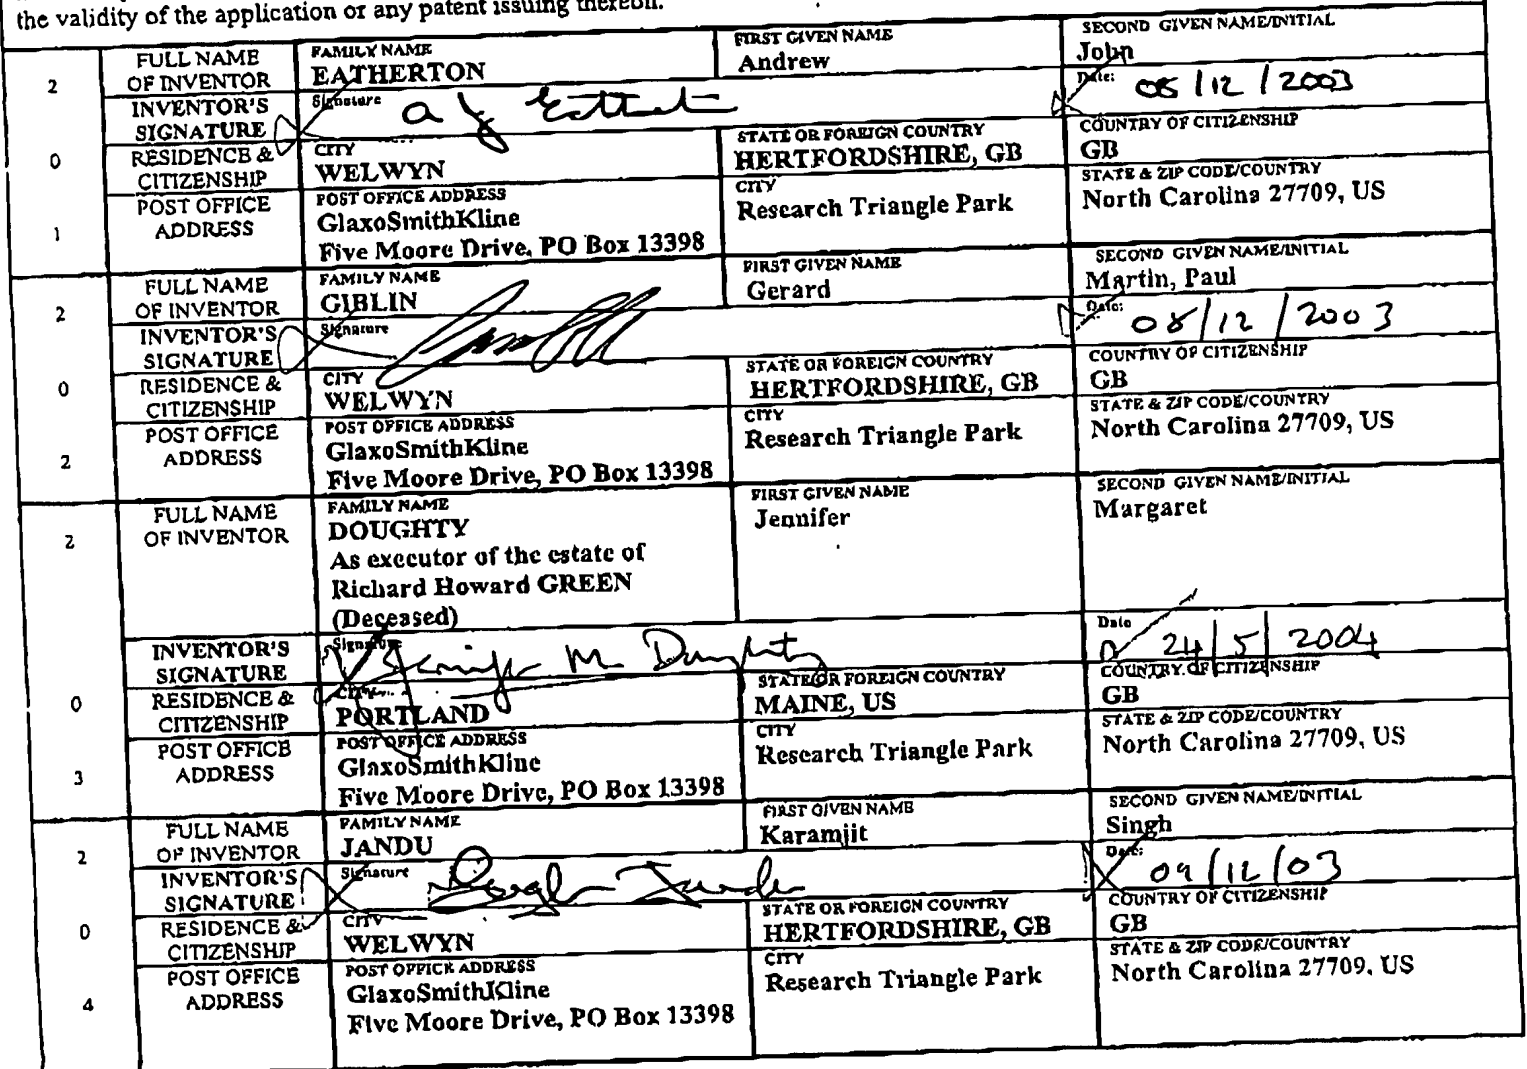 the validity of the application or any patent issuing thereon.
2 FULL NAME OF INVENTOR FAMILY NAME EATHERTON FIRST GIVEN NAME Andrew SECOND GIVEN NAME/INITIAL John
INVENTOR'S SIGNATURE Signature a j Eatherton Date: 08/12/2003
0 RESIDENCE & CITIZENSHIP CITY WELWYN STATE OR FOREIGN COUNTRY HERTFORDSHIRE, GB COUNTRY OF CITIZENSHIP GB
1 POST OFFICE ADDRESS POST OFFICE ADDRESS GlaxoSmithKline CITY Research Triangle Park STATE & ZIP CODE/COUNTRY North Carolina 27709, US
Five Moore Drive, PO Box 13398
2 FULL NAME OF INVENTOR FAMILY NAME GIBLIN FIRST GIVEN NAME Gerard SECOND GIVEN NAME/INITIAL Martin, Paul
INVENTOR'S SIGNATURE Signature Date: 08/12/2003
0 RESIDENCE & CITIZENSHIP CITY WELWYN STATE OR FOREIGN COUNTRY HERTFORDSHIRE, GB COUNTRY OF CITIZENSHIP GB
2 POST OFFICE ADDRESS POST OFFICE ADDRESS GlaxoSmithKline CITY Research Triangle Park STATE & ZIP CODE/COUNTRY North Carolina 27709, US
Five Moore Drive, PO Box 13398
2 FULL NAME OF INVENTOR FAMILY NAME DOUGHTY FIRST GIVEN NAME Jennifer SECOND GIVEN NAME/INITIAL Margaret
As executor of the estate of
Richard Howard GREEN
(Deceased)
INVENTOR'S SIGNATURE Signature Jennifer M Doughty Date 24/5/2004
0 RESIDENCE & CITIZENSHIP CITY PORTLAND STATE OR FOREIGN COUNTRY MAINE, US COUNTRY OF CITIZENSHIP GB
3 POST OFFICE ADDRESS POST OFFICE ADDRESS GlaxoSmithKline CITY Research Triangle Park STATE & ZIP CODE/COUNTRY North Carolina 27709, US
Five Moore Drive, PO Box 13398
2 FULL NAME OF INVENTOR FAMILY NAME JANDU FIRST GIVEN NAME Karamjit SECOND GIVEN NAME/INITIAL Singh
INVENTOR'S SIGNATURE Signature Singh Jandu Date: 09/12/03
0 RESIDENCE & CITIZENSHIP CITY WELWYN STATE OR FOREIGN COUNTRY HERTFORDSHIRE, GB COUNTRY OF CITIZENSHIP GB
4 POST OFFICE ADDRESS POST OFFICE ADDRESS GlaxoSmithKline CITY Research Triangle Park STATE & ZIP CODE/COUNTRY North Carolina 27709, US
Five Moore Drive, PO Box 13398